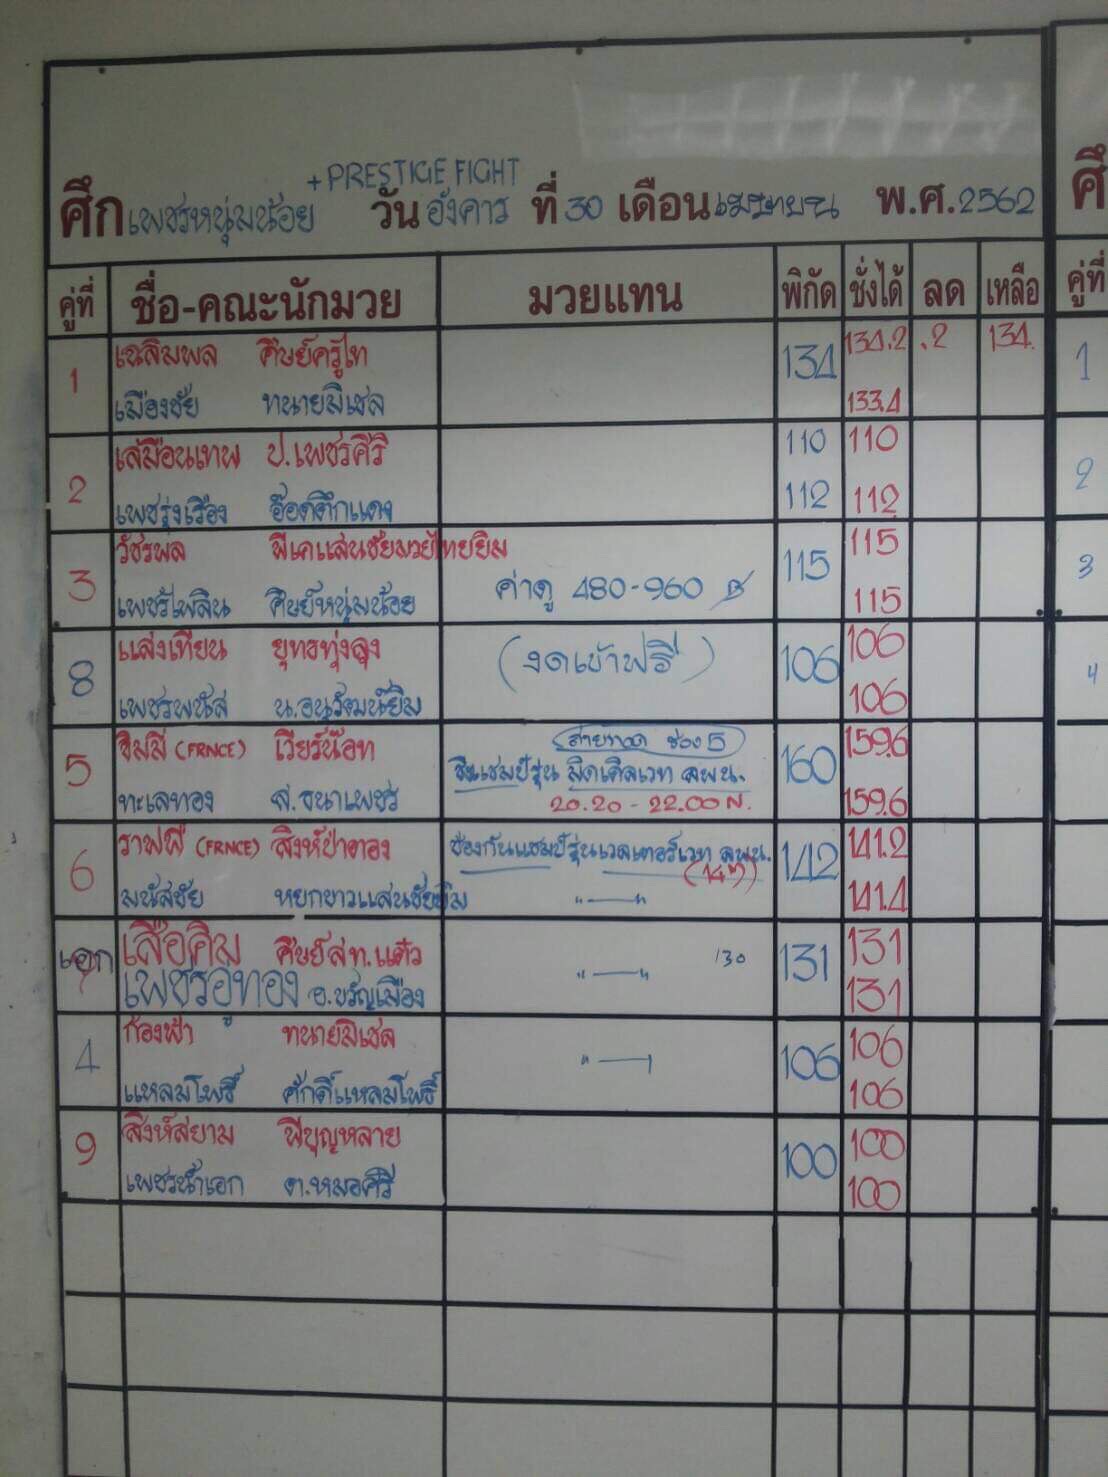 + PRESTIGE FIGHT
ศึกเพชรหนุ่มน้อย วันอังคาร ที่ 30 เดือนเมษายน พ.ศ.2562
ศึ
คู่ที่ ชื่อ-คณะนักมวย มวยแทน พิกัด ชั่งได้ ลด เหลือ คู่ที่
1 เฉลิมพล ศิษย์ครูไก่ 134 134.2 .2 134. 1
เมืองชัย ทนายมิเชล 133.4
2 เสมือนเทพ ป.เพชรศิริ 110 110
เพชรรุ่งเรือง อ๊อดตึกแดง 112 112 2
3 วัชรพล พีเคแสนชัยมวยไทยยิม 115 115
เพชรไพลิน ศิษย์หนุ่มน้อย ค่าดู 480-960 ฿ 115 3
8 แสงเทียน ยุทธทุ่งลุง (งดเข้าฟรี) 106 106
เพชรพนัส น.อนุวัฒน์ยิม 106 4
5 จิมมี่ (FRNCE) เวียร์น๊อท ถ่ายทอด ช่อง 5 160 159.6
ชิงแชมป์รุ่น มิดเดิลเวท ลพน.
ทะเลทอง ส.ธนาเพชร 20.20 - 22.00 น. 159.6
6 ราฟฟี่ (FRNCE) สิงห์ป่าตอง ป้องกันแชมป์รุ่นเวลเตอร์เวท ลพน. 142 141.2
(147)
มนัสชัย หยกขาวแสนชัยยิม "——" 141.4
เอก เสือคิม ศิษย์สท.แต๋ว "——" 130 131 131
เพชรอู่ทอง อ.ขวัญเมือง 131
4 ก้องฟ้า ทนายมิเชล "—— 106 106
แหลมโพธิ์ ศักดิ์แหลมโพธิ์ 106
9 สิงห์สยาม พีบุญหลาย 100 100
เพชรน้ำเอก ต.หมอศรี 100